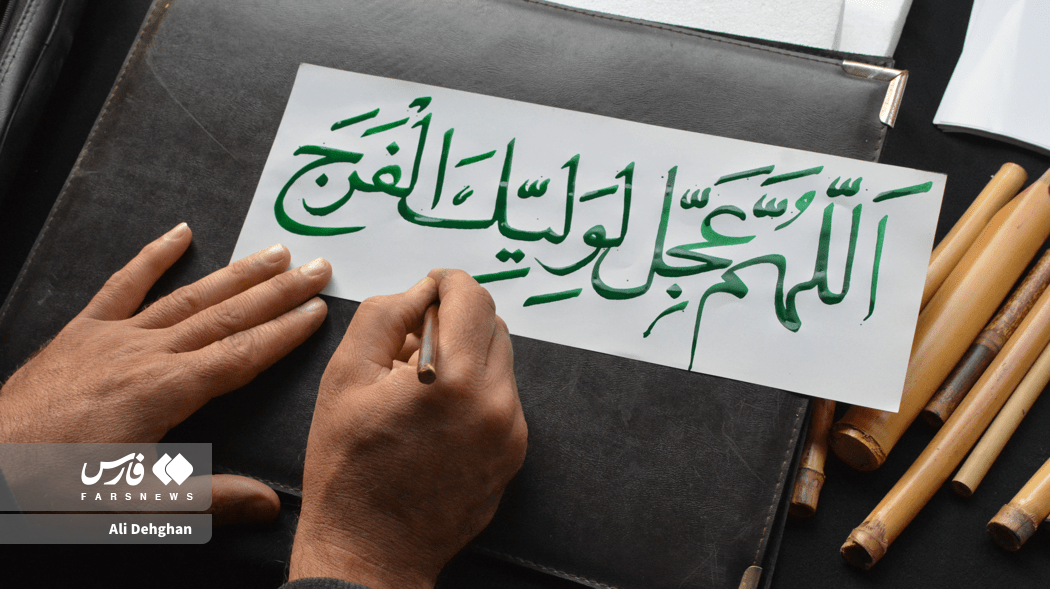 اَللّٰهُمَّ عَجِّل لِوَلیِّکَ الْفَرَج
فارس
FARSNEWS
Ali Dehghan